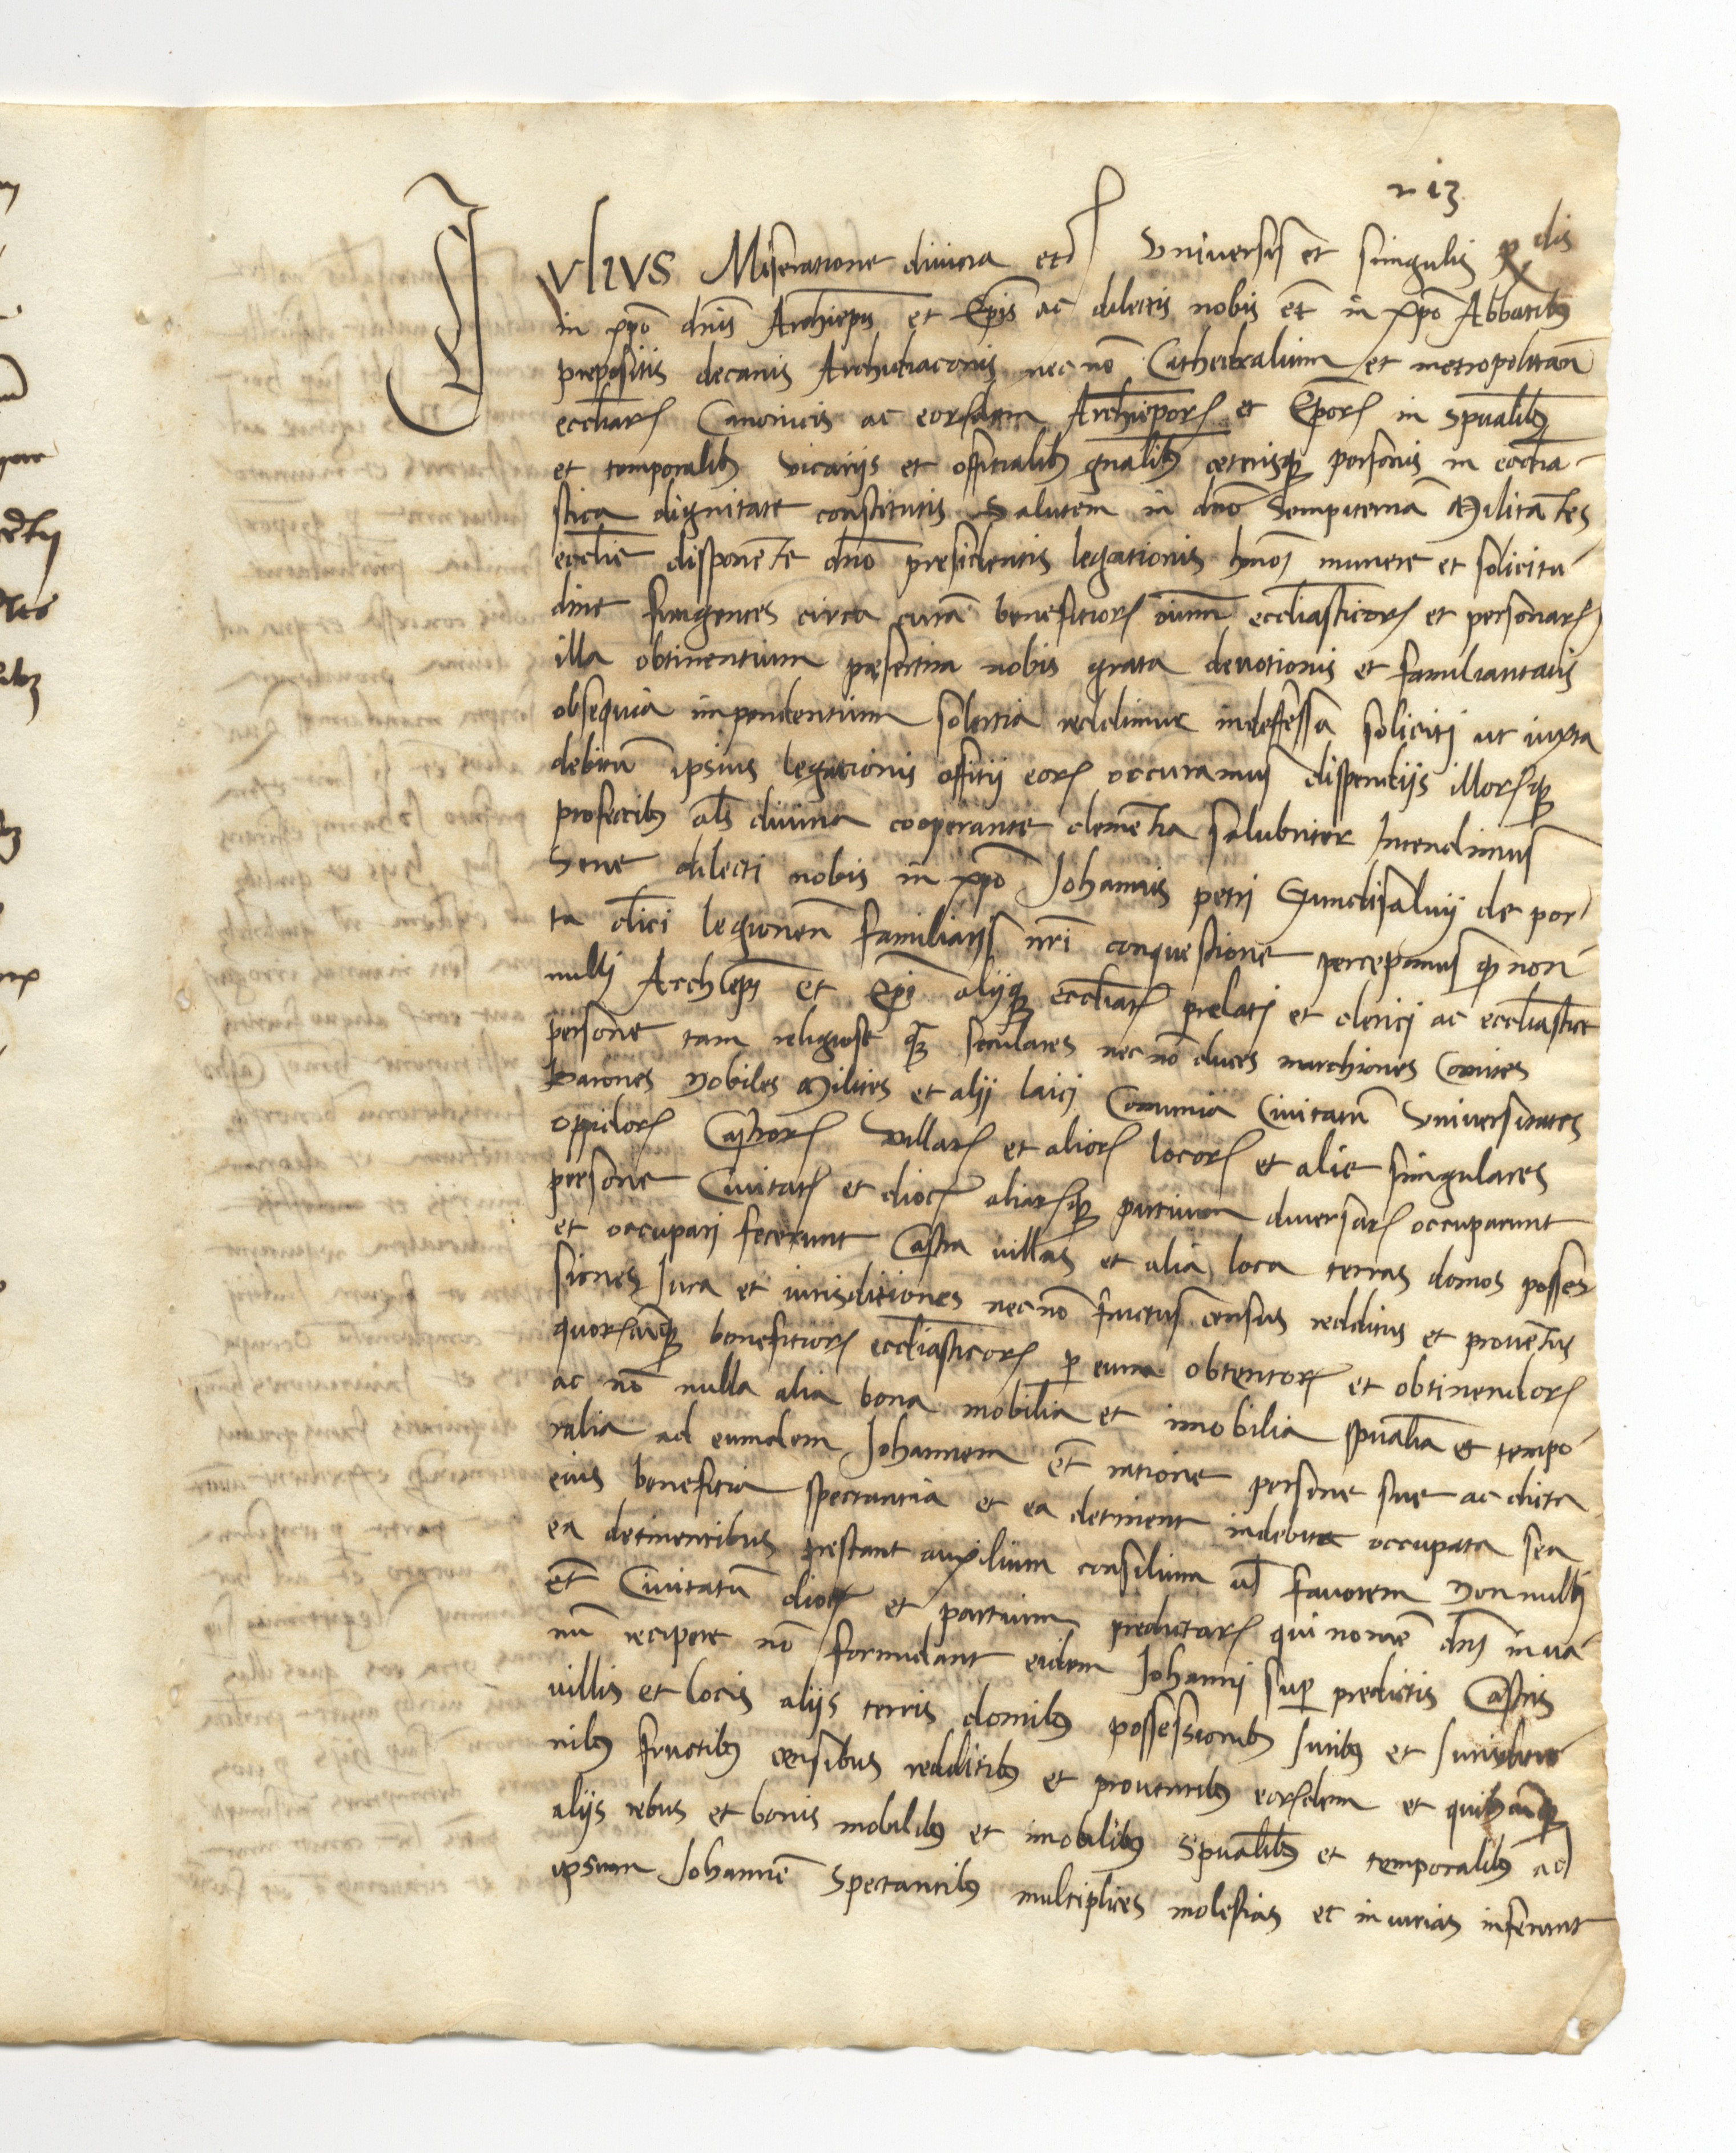 213
IVlIVS Miseratione divina etc Universis et singulis R dis
in xpo dnis Archiepis et Epis ac dilectis nobis et in xpo Abbatibus
prepositis decanis Archidiaconis nec no Cathedralium et metropolitan
eccliar Canonicis ac eorundem Archiepor et Epor in spualib
et temporalib vicariis et offitialib gnalib ceterisque personis in ecclia
stica dignitate constitutis Salutem in dno Sempiterna Militantes
ecclie disponente dno presidentis legationis hmoi munere et solicitu
dine fungentes circa cura benefitior oium eccliasticor et personar
illa obtinentium presertim nobis grata devotionis et familiaritatis
obsequia impendentium solertia reddimur indefessa soliciti ut iuxta
debitu ipsius legationis offitii eor occuramus dispendiis illorque
profectib als divina cooperante clementia salubriter Intendimus
Sane dilecti nobis in xpo Johannis petri Gundisalvii de por
ta clici legionen familiaris nri conquestione percepimus q non
nulli Archiepi et Epi aliique eccliar prelati et clerici ac eccliastice
persone tam religiose q seculares nec no duces marchiones Comites
barones Nobiles Milites et alii laici Communia Civitatu Universitates
oppidor Castror Villar et alior locor et alie singulares
persone Civitat et dioc aliarque partium diversar occuparunt
et occupari fecerunt Castra villas et alia loca terras domos posses
siones Iura et iurisditiones nec no fructus census redditus et proventus
quorcunque benefitior eccliasticor p eum obtentor et obtinendor
ac no nulla alia bona mobilia et imobilia spualia et tempo
ralia ad eumdem Johannem et ratione persone sue ac dicta
eius benefitia spectantia et ea detinent indebite occupata seu
ea detinentibus prestant auxilium consilium ul favorem Nonnulli
et Civitatu dioc et partium predictar qui nome dni in va
nu recipere no formidant eidem Johanni sup predictis Castris
villis et locis aliis terris domibus possessionib Iuribus et Iurisditio
nibus fructibus censibus redditibus et proventibus eorumdem et quibuscunque
aliis rebus et bonis mobilibus et imobilibus Spualibus et temporalibus ad
ipsum Johanne Spectantibus multiplices molestias et iniurias inferunt